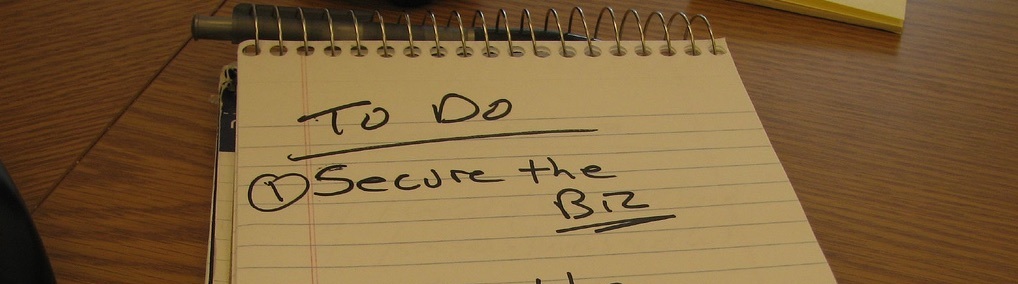 To Do
① Secure the
Biz